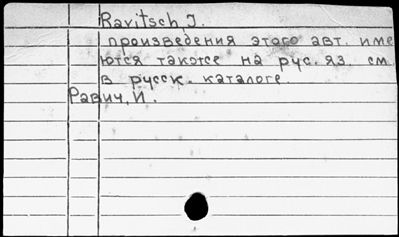 Ravitsch J.
произведения этого авт. име
ются также на рус. яз. см.
в русск. каталоге.
Равич, И.